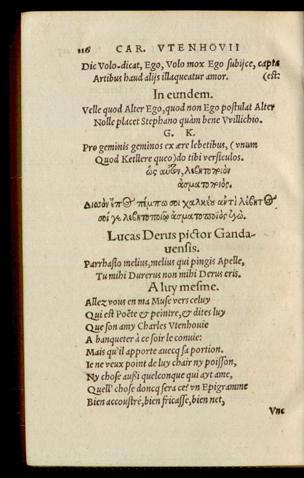 116 CAR. VTENHOVII
Dic Volo-dicat, Ego, Volo mox Ego subijce, capta
Artibus haud alijs illaqueatur amor. (est:
In eundem.
Velle quod Alter Ego, quod non Ego postulat Alter
Nolle placet Stephano quàm bene Vvillichio.
G. K.
Pro geminis geminos ex ære lebetibus, (vnum
Quod Ketllere queo) do tibi versiculos.
ὡς αὔξιν, λεβητοπριὸν
ἀσματοπριός.
πέμπω σοι χαλκέυ αντὶ λέβητος
σοί γε λεβητοποιῷ ἀσματοποιὸς ἐγώ.
Lucas Derus pictor Ganda-
uensis.
Parrhasio melius, melius qui pingis Apelle,
Tu mihi Durerus non mihi Derus eris.
A luy mesme.
Allez vous en ma Muse vers celuy
Qui est Poëte & peintre, & dites luy
Que son amy Charles Vtenhouie
A banqueter à ce soir le conuie:
Mais qu'il apporte auecq sa portion.
Ie ne veux point de luy chair ny poisson,
Ny chose außi quelconque qui ayt ame,
Quell' chose doncq sera ce? vn Epigramme
Bien accoustré, bien fricassé, bien net,
Vne